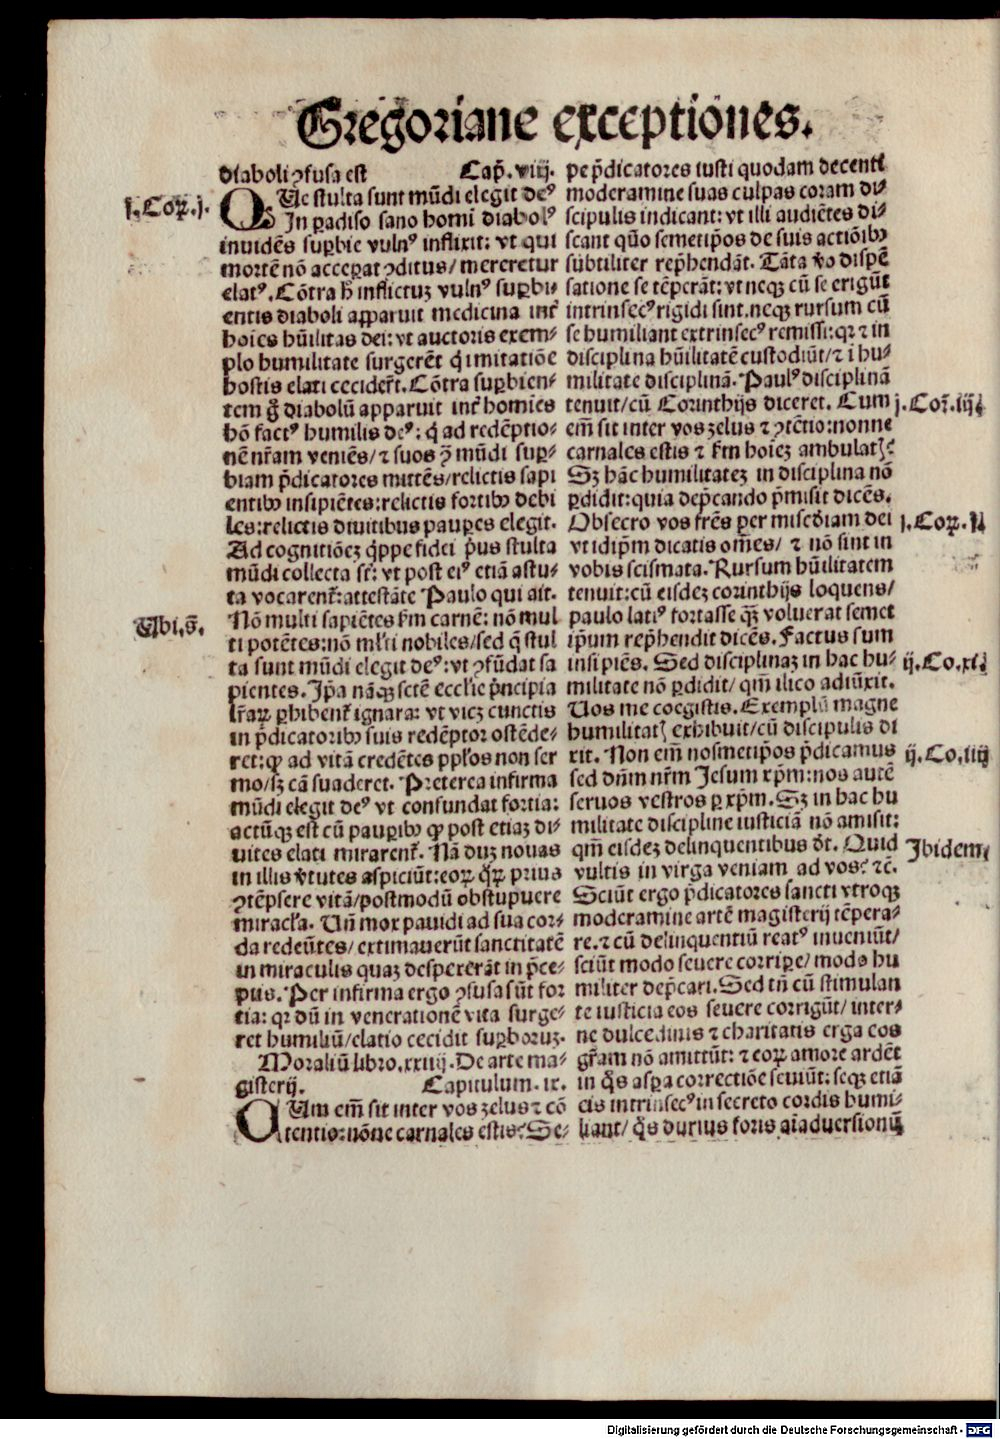 Gregoriane exceptiões.
diaboli ꝯfusa est Cap̃. viij.
j. Coꝝ. j.
QUe stulta sunt mũdi elegit deꝰ
In ꝑadiso sano homi diabolꝰ
inuidẽs suꝑbie vulnꝰ inflixit: vt qui
mortẽ nõ acceꝑat ꝯditus/ mereretur
elatꝰ. Cõtra h̃ inflictuz vulnꝰ suꝑbi⸗
entis diaboli apparuit medicina int̃
hoĩes hũilitas dei: vt auctoris exem⸗
plo humilitate surgerẽt q̃ imitatiõe
hostis elati cecider̃t. Cõtra suꝑbien⸗
tem g̃ diabolũ apparuit int̃ homĩes
hõ factꝰ humilis deꝰ: q̃ ad redẽptio⸗
nẽ nr̃am veniẽs/ ⁊ suos ꝯ̃ mũdi suꝑ⸗
biam p̃dicatores mittẽs/ relictis sapi
entibꝫ insipiẽtes: relictis fortibꝫ debi
les: relictis diuitibus pauꝑes elegit.
Ad cognitiõez q̃ppe fidei p̃us stulta
mũdi collecta st̃: vt post eiꝰ etiã astu⸗
ta vocarent̃: attestãte Paulo qui ait.
Ubi. s̃.
Nõ multi sapiẽtes ẜm carnẽ: nõ mul
ti potẽtes: nõ ml̃ti nobiles/ sed q̃ stul
ta sunt mũdi elegit deꝰ: vt ꝯfũdat sa
pientes. Ip̃a nãqꝫ sctẽ eccl̃ie p̃ncipia
lr̃aꝝ ꝑhibent̃ ignara: vt vicz cunctis
in p̃dicatoribꝫ suis redẽptor ostẽde⸗
ret: ꝙ ad vitã credẽtes ppl̃os non ser
mo/ sꝫ cã suaderet. Preterea infirma
mũdi elegit deꝰ vt confundat fortia:
actũqꝫ est cũ pauꝑibꝫ ꝙ post etiaz di⸗
uites elati mirarent̃. Nã duz nouas
in illis v̾tutes aspiciũt: eoꝝ q̃ꝝ prius
ꝯtẽpsere vitã/ postmodũ obstupuere
miracl̃a. Uñ mox pauidi ad sua cor⸗
da redeũtes/ extimauerũt sanctitatẽ
in miraculis quaz despexerãt in p̃ce⸗
ptis. Per infirma ergo ꝯfusa sũt for
tia: qꝛ dũ in venerationẽ vita surge⸗
ret humiliũ/ elatio cecidit suꝑborum.
Moraliũ libro. xxiiij. De arte ma⸗
gisterij. Capitulum. ix.
CUm em̃ sit inter vos zelus ⁊ cõ
tentio: nõne carnales estis? Se⸗
pe p̃dicatores iusti quodam decenti
moderamine suas culpas coram di⸗
scipulis indicant: vt illi audiẽtes di⸗
scant quõ semetip̃os de suis actiõibꝫ
subtiliter rep̃hendãt. Tãta v̾o dispẽ
satione se tẽperãt: vt neqꝫ cũ se erigũt
intrinsecꝰ rigidi sint. neqꝫ rursum cũ
se humiliant extrinsecꝰ remissi: qꝛ ⁊ in
disciplina hũilitatẽ custodiũt/ ⁊ ĩ hu⸗
militate disciplinã. Paulꝰ disciplinã
tenuit/ cũ Corinthijs diceret. Cum
j. Coꝝ. iij.
em̃ sit inter vos zelus ⁊ ꝯtẽtio: nonne
carnales estis ⁊ ẜm hoĩez ambulatꝭ?
Sꝫ hãc humilitatez in disciplina nõ
ꝑdidit: quia dep̃cando p̃misit dicẽs.
Obsecro vos fr̃es per miscd̾iam dei
j. Coꝝ. j.
vt idip̃m dicatis om̃es/ ⁊ nõ sint in
vobis scismata. Rursum hũilitatem
tenuit: cũ eisdez corinthijs loquens/
paulo latiꝰ fortasse qz̃ voluerat semet
ip̃um rep̃hendit dicẽs. Factus sum
insipiẽs. Sed disciplinaz in hac hu⸗
ij. Co. xij.
militate nõ ꝑdidit/ qm̃ ilico adiũxit.
Uos me coegistis. Exemplũ magne
humilitatꝭ exhibuit/ cũ discipulis di
xit. Non em̃ nosmetip̃os p̃dicamus
ij. Co. iiij
sed dñm nr̃m Jesum xp̃m: nos autẽ
seruos vestros ꝑ xp̃m. Sꝫ in hac hu
militate discipline iusticiã nõ amisit:
qm̃ eisdez delinquentibus d̃t. Quid
Ibidem
vultis in virga veniam ad vos? ⁊c̃.
Sciũt ergo p̃dicatores sancti vtroqꝫ
moderamine artẽ magisterij tẽpera⸗
re. ⁊ cũ delinquentiũ reatꝰ inueniũt/
sciũt modo seuere corriꝑe/ modo hu
militer dep̃cari. Sed tñ cũ stimulan
te iusticia eos seuere corrigũt/ inter⸗
ne dulcedinis ⁊ charitatis erga eos
gr̃am nõ amittũt: ⁊ eoꝝ amore ardẽt
in q̃s asꝑa correctiõe seuiũt: seqꝫ etiã
eis intrinsecꝰ in secreto cordis humi⸗
liant/ q̃s durius foris aĩaduersionũ
Digitalisierung gefördert durch die Deutsche Forschungsgemeinschaft - DFG